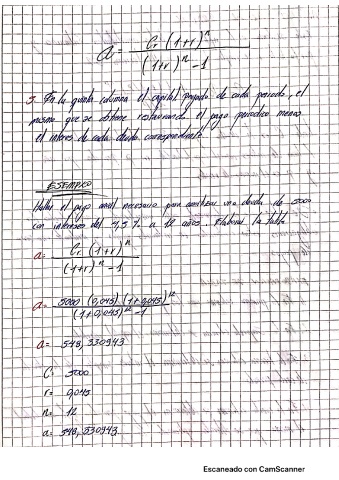 a = Cr (1+r)^n
(1+r)^n - 1
5. En la quinta columna el capital pagado de cada periodo, el
mismo que se obtiene restando el pago periodico menos
el interes de cada deuda correspondiente
EJEMPLO
Hallar el pago anual necesario para amortizar una deuda de 5000
con intereses del 4,5% a 12 años. Elaborar la tabla
a = Cr (1+r)^n
(1+r)^n - 1
a = 5000 (0,045) (1+0,045)^12
(1+0,045)^12 - 1
a = 548,330943
C = 5000
r = 0,045
n = 12
a = 548,330943
Escaneado con CamScanner